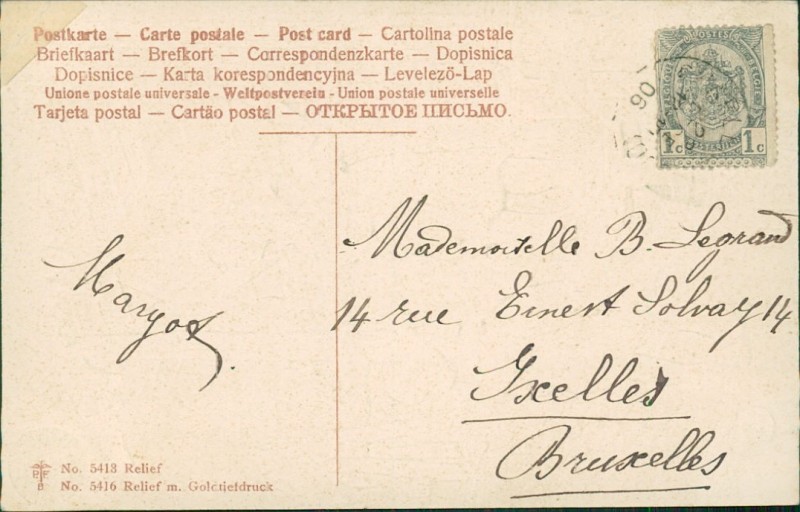 Postkarte — Carte postale — Post card — Cartolina postale
Briefkaart — Brefkort — Correspondenzkarte — Dopisnica
Dopisnice — Karta korespondencyjna — Levelező-Lap
Unione postale universale - Weltpostverein - Union postale universelle
Tarjeta postal — Cartão postal — ОТКРЫТОЕ ПИСЬМО.
POSTES
1c 1c
06
Mademoiselle B. Legrand
14 rue Ernest Solvay 14
Ixelles
Bruxelles
Margot.
No. 5413 Relief
No. 5416 Relief m. Goldtiefdruck